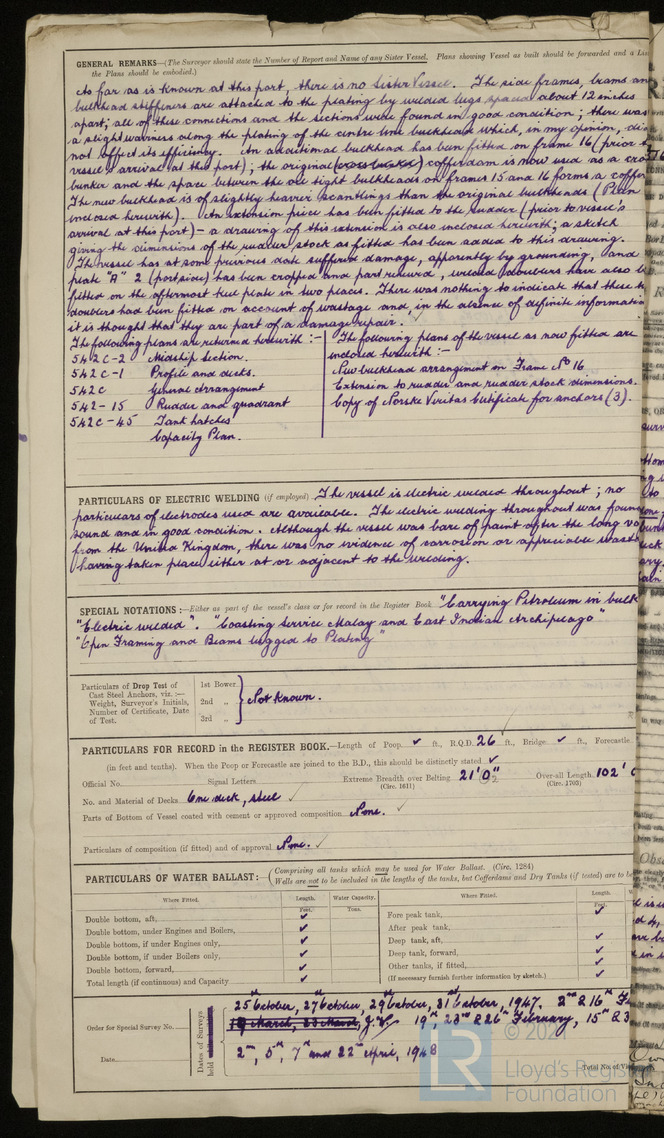 GENERAL REMARKS—(The Surveyor should state the Number of Report and Name of any Sister Vessel. Plans showing Vessel as built should be forwarded and a
the Plans should be embodied.)
As far as is known at this part, there is no Sister Vessel. The side frames, beams an
bulkhead stiffeners are attached to the plating by welded lugs spaced about 12 inches
apart; all of these connections and the sections were found in good condition; there was
a slight waviness along the plating of the centre line bulkhead which, in my opinion, di
not affect its efficiency. An additional bulkhead has been fitted on frame 16 (prior t
vessel's arrival at this port); the original (cross bunker) cofferdam is now used as a cro
bunker and the space between the oil tight bulkheads on frames 15 and 16 forms a coffer
The new bulkhead is of slightly heavier scantlings than the original bulkheads (Plan
inclosed herewith). An extension piece has been fitted to the rudder (prior to vessel's
arrival at this port) – a drawing of this extension is also inclosed herewith; a sketch
giving the dimensions of the rudder stock as fitted has been added to this drawing.
The vessel has at some previous date suffered damage, apparently by grounding, and
plate "A" 2 (port side) has been cropped and part renewed, welded doublers have also b
fitted on the aftermost keel plate in two places. There was nothing to indicate that these
doublers had been fitted on account of wastage and in the absence of definite informatio
it is thought that they are part of a damage repair.
The following plans are returned herewith :-
542C-2 Midship Section.
542C-1 Profile and decks.
542C General Arrangement
542-15 Rudder and quadrant
542C-45 Tank hatches
Capacity Plan.
The following plans of the vessel as now fitted are
enclosed herewith :-
New bulkhead arrangement on Frame No 16
Extension to rudder and rudder stock dimensions.
Copy of Norske Veritas Certificate for anchors (3).
PARTICULARS OF ELECTRIC WELDING (if employed). The vessel is electric welded throughout; no
particulars of electrodes used are available. The electric welding throughout was foun
sound and in good condition. Although the vessel was bare of paint after the long vo
from the United Kingdom, there was no evidence of corrosion or appreciable wast
having taken place either at or adjacent to the welding.
SPECIAL NOTATIONS:—Either as part of the vessel's class or for record in the Register Book "Carrying Petroleum in bulk
"Electric welded". "Coasting Service Malay and East Indian Archipelago"
"Open Framing and Beams lugged to Plating"
Particulars of Drop Test of
Cast Steel Anchors, viz. :—
Weight, Surveyor's Initials,
Number of Certificate, Date
of Test.
1st Bower
2nd „
3rd „
Not known.
PARTICULARS FOR RECORD in the REGISTER BOOK.—Length of Poop ✓ ft., R.Q.D. 26 ft., Bridge ✓ ft., Forecastle
(in feet and tenths). When the Poop or Forecastle are joined to the B.D., this should be distinctly stated ✓
Official No. Signal Letters Extreme Breadth over Belting 21'0" Over-all Length 102'
(Circ. 1611) (Circ. 1703)
No. and Material of Decks One deck, steel ✓
Parts of Bottom of Vessel coated with cement or approved composition None. ✓
Particulars of composition (if fitted) and of approval None. ✓
PARTICULARS OF WATER BALLAST:— Comprising all tanks which may be used for Water Ballast. (Circ. 1284)
Wells are not to be included in the lengths of the tanks, but Cofferdams and Dry Tanks (if tested) are to b
Where Fitted. Length. Water Capacity. Where Fitted. Length.
Feet. Tons. Feet.
Double bottom, aft, ✓ Fore peak tank, ✓
Double bottom, under Engines and Boilers, ✓ After peak tank,
Double bottom, if under Engines only, ✓ Deep tank, aft, ✓
Double bottom, if under Boilers only, ✓ Deep tank, forward, ✓
Double bottom, forward, ✓ Other tanks, if fitted, ✓
Total length (if continuous) and Capacity ✓ (If necessary furnish further information by sketch.) ✓
Order for Special Survey No.
Date
Dates of Surveys held
25 October, 27 October, 29 October, 31 October, 1947. 2nd & 16th
19 March, 23 March, 19th, 23rd & 26th February, 15th & 3
2nd, 5th, 7th and 22nd April, 1948
Total No. of
© 202
LR
Lloyd's Regis
Foundation